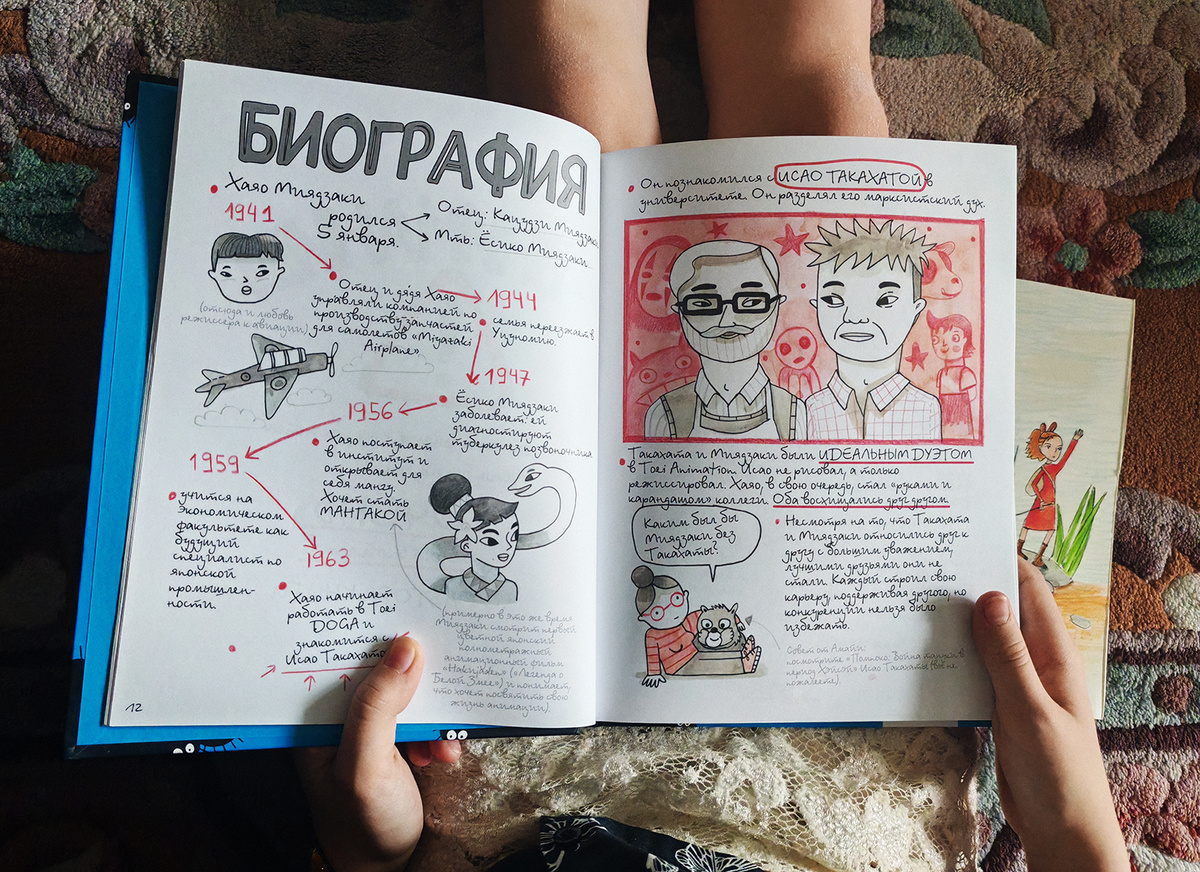 БИОГРАФИЯ
Хаяо Миядзаки
1941
родился
5 января.
Отец: Кацудзи Миядзаки
Мть: Ёсико Миядзаки
Отец и дядя Хаяо
управляли компанией по
производству запчастей
для самолетов «Miyazaki
Airplane»
(отсюда и любовь
режиссера к авиации)
1944
семья переезжает в
Уцуномию.
1947
Ёсико Миядзаки
заболевает: ей
диагностируют
туберкулез позвоночника
1956
Хаяо поступает
в институт и
открывает для
себя мангу.
Хочет стать
МАНГАКОЙ
(примерно в это же время
Миядзаки смотрит первый
цветной японский
полнометражный
анимационный фильм
(«Легенда о
Белой Змее») и понимает,
что хочет посвятить свою
жизнь анимации).
1959
учится на
экономическом
факультете как
будущий
специалист по
японской
промышлен-
ности.
1963
Хаяо начинает
работать в Toei
DOGA и
знакомится с
Исао Такахато
12
Он познакомился с ИСАО ТАКАХАТОЙ в
университете. Он разделял его марксистский дух.
Такахата и Миядзаки были ИДЕАЛЬНЫМ ДУЭТОМ
в Toei Animation. Исао не рисовал, а только
режиссировал. Хаяо, в свою очередь, стал «руками и
карандашом» коллеги. Оба восхищались друг другом.
Каким был бы
Миядзаки без
Такахаты?
Несмотря на то, что Такахата
и Миядзаки относились друг к
другу с большим уважением,
лучшими друзьями они не
стали. Каждый строил свою
карьеру, поддерживая другого, но
конкуренции нельзя было
избежать.
Совет от Амати:
посмотрите «Помпоко: Война тануки в
период Хэйсэй» Исао Такахаты (вы не
пожалеете).